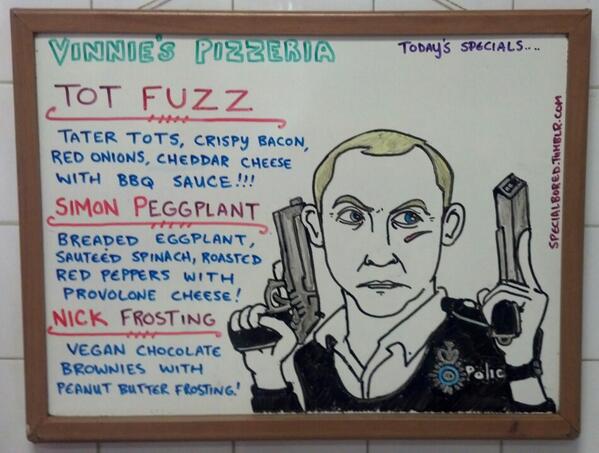 VINNIE'S PIZZERIA
TODAY'S SPECIALS....
TOT FUZZ
TATER TOTS, CRISPY BACON,
RED ONIONS, CHEDDAR CHEESE
WITH BBQ SAUCE!!!
SIMON PEGGPLANT
BREADED EGGPLANT,
SAUTEED SPINACH, ROASTED
RED PEPPERS WITH
PROVOLONE CHEESE!
NICK FROSTING
VEGAN CHOCOLATE
BROWNIES WITH
PEANUT BUTTER FROSTING!
POLIC
SPECIALBORED.TUMBLR.COM